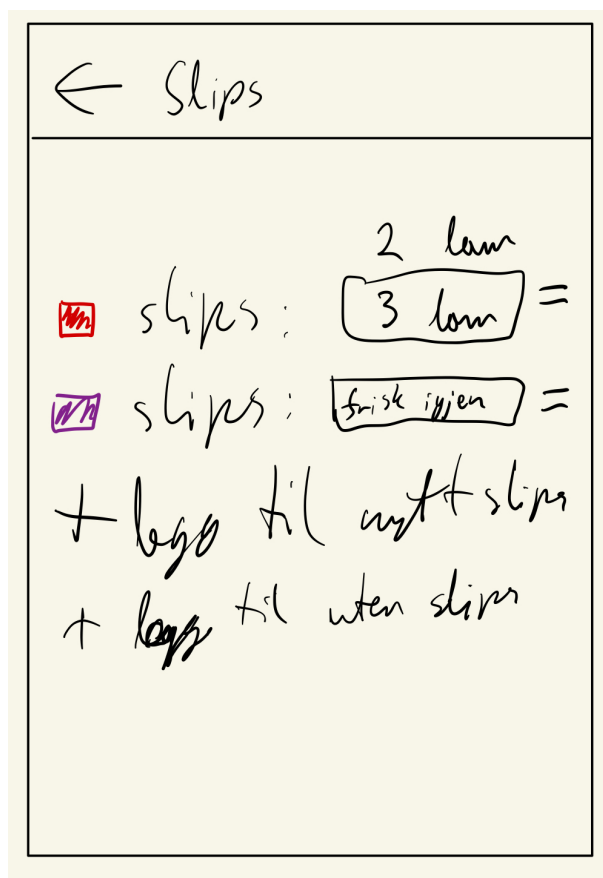 ← Slips
2 lam
slips: 3 lam =
slips: frisk igjen =
+ legg til nytt slips
+ legg til uten slips